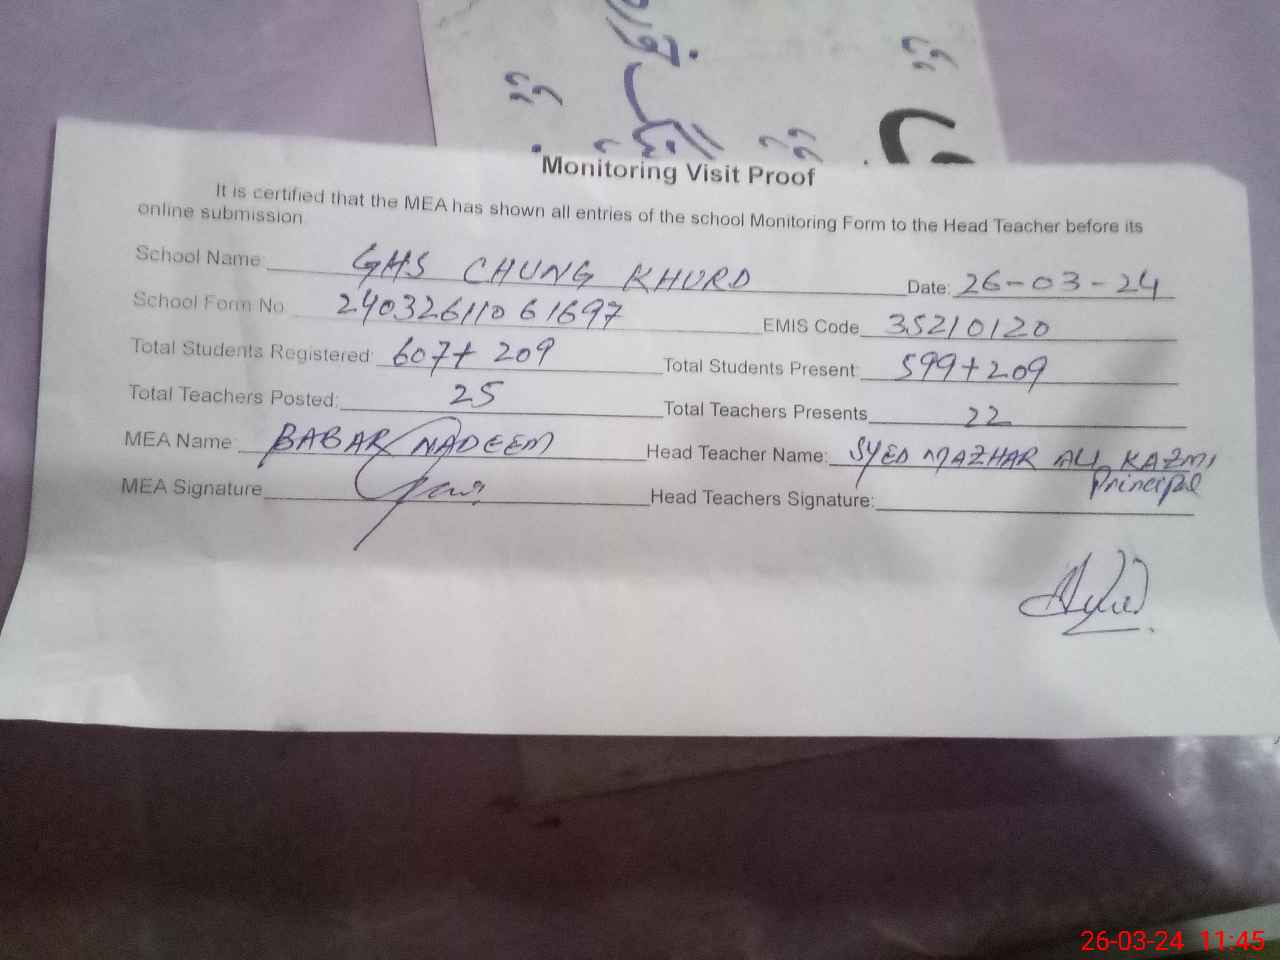 Monitoring Visit Proof
It is certified that the MEA has shown all entries of the school Monitoring Form to the Head Teacher before its
online submission
School Name: GHS CHUNG KHURD Date: 26-03-24
School Form No 24032611061697 EMIS Code 35210120
Total Students Registered: 607+209 Total Students Present: 599+209
Total Teachers Posted: 25 Total Teachers Presents 22
MEA Name: BABAR NADEEM Head Teacher Name: SYED MAZHAR ALI KAZMI
Principal
MEA Signature Head Teachers Signature:
26-03-24 11:45